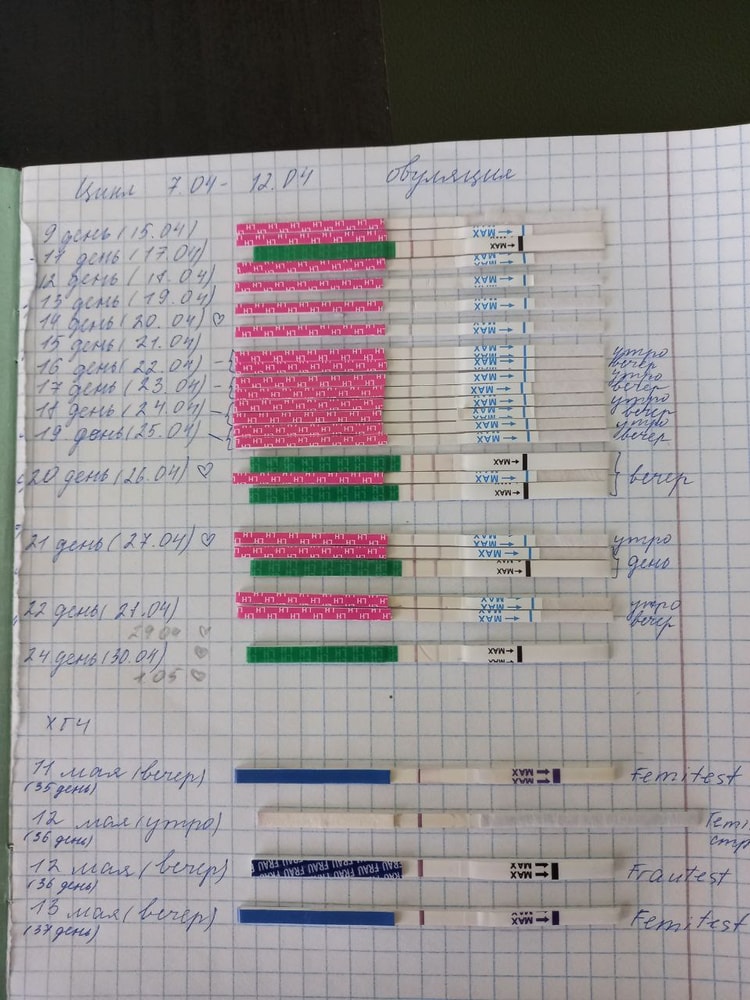 Цикл 7.04 - 12.04 Овуляция
9 день (15.04)
11 день (17.04)
12 день (18.04)
13 день (19.04)
14 день (20.04) ♡
15 день (21.04)
16 день (22.04) утро вечер
17 день (23.04) утро вечер
18 день (24.04) утро вечер
19 день (25.04) утро вечер
20 день (26.04) ♡ вечер
21 день (27.04) ♡ утро
день
22 день (28.04) утро
вечер
29.04 ♡
24 день (30.04) ♡
1.05 ♡
ХГЧ
11 мая (вечер) MAX Femitest
(35 день)
12 мая (утро) Femi
(36 день) стр
12 мая (вечер) FRAU FRAU FRAU FRAU MAX Frautest
(36 день)
13 мая (вечер) MAX Femitest
(37 день)